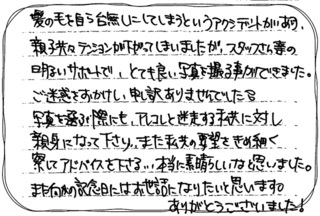 髪の毛を自ら台無しにしてしまうというアクシデントがあり、
親子共々テンションが下がってしまいましたが、スタッフさん達の
明るいサポートで、とても良い写真を撮る事ができました。
ご迷惑をおかけし、申し訳ありませんでした
写真を選ぶ際にも、アレコレと迷走する私共に対し
親身になって下さり、また私共の要望をきめ細く
察してアドバイスを下さる…本当に素晴らしいなと思いました。
また何れの記念日にはお世話になりたいと思います。
ありがとうございました!